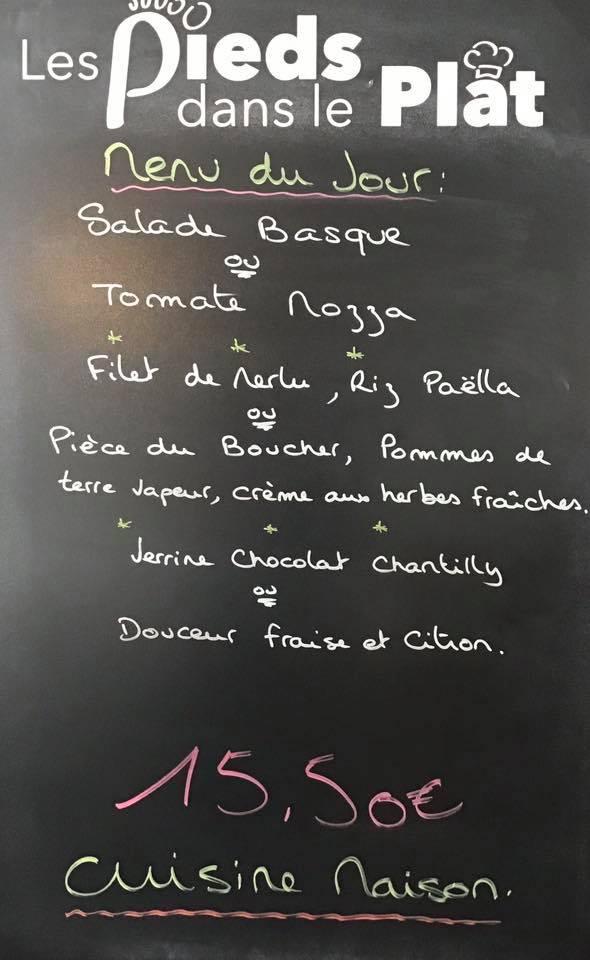 Les Pieds
dans le Plat
Menu du Jour:
Salade Basque
ou
Tomate Mozza
* * *
Filet de Merlu, Riz Paëlla
ou
Pièce du Boucher, Pommes de
terre vapeur, crème aux herbes fraîches.
* * *
Verrine Chocolat Chantilly
ou
Douceur fraise et Citron.
15,50€
Cuisine Maison.